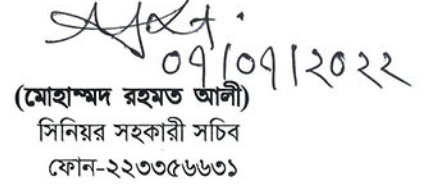 ০৭/০৭/২০২২
(মোহাম্মদ রহমত আলী)
সিনিয়র সহকারী সচিব
ফোন-২২৩৩৫৬৬৩১